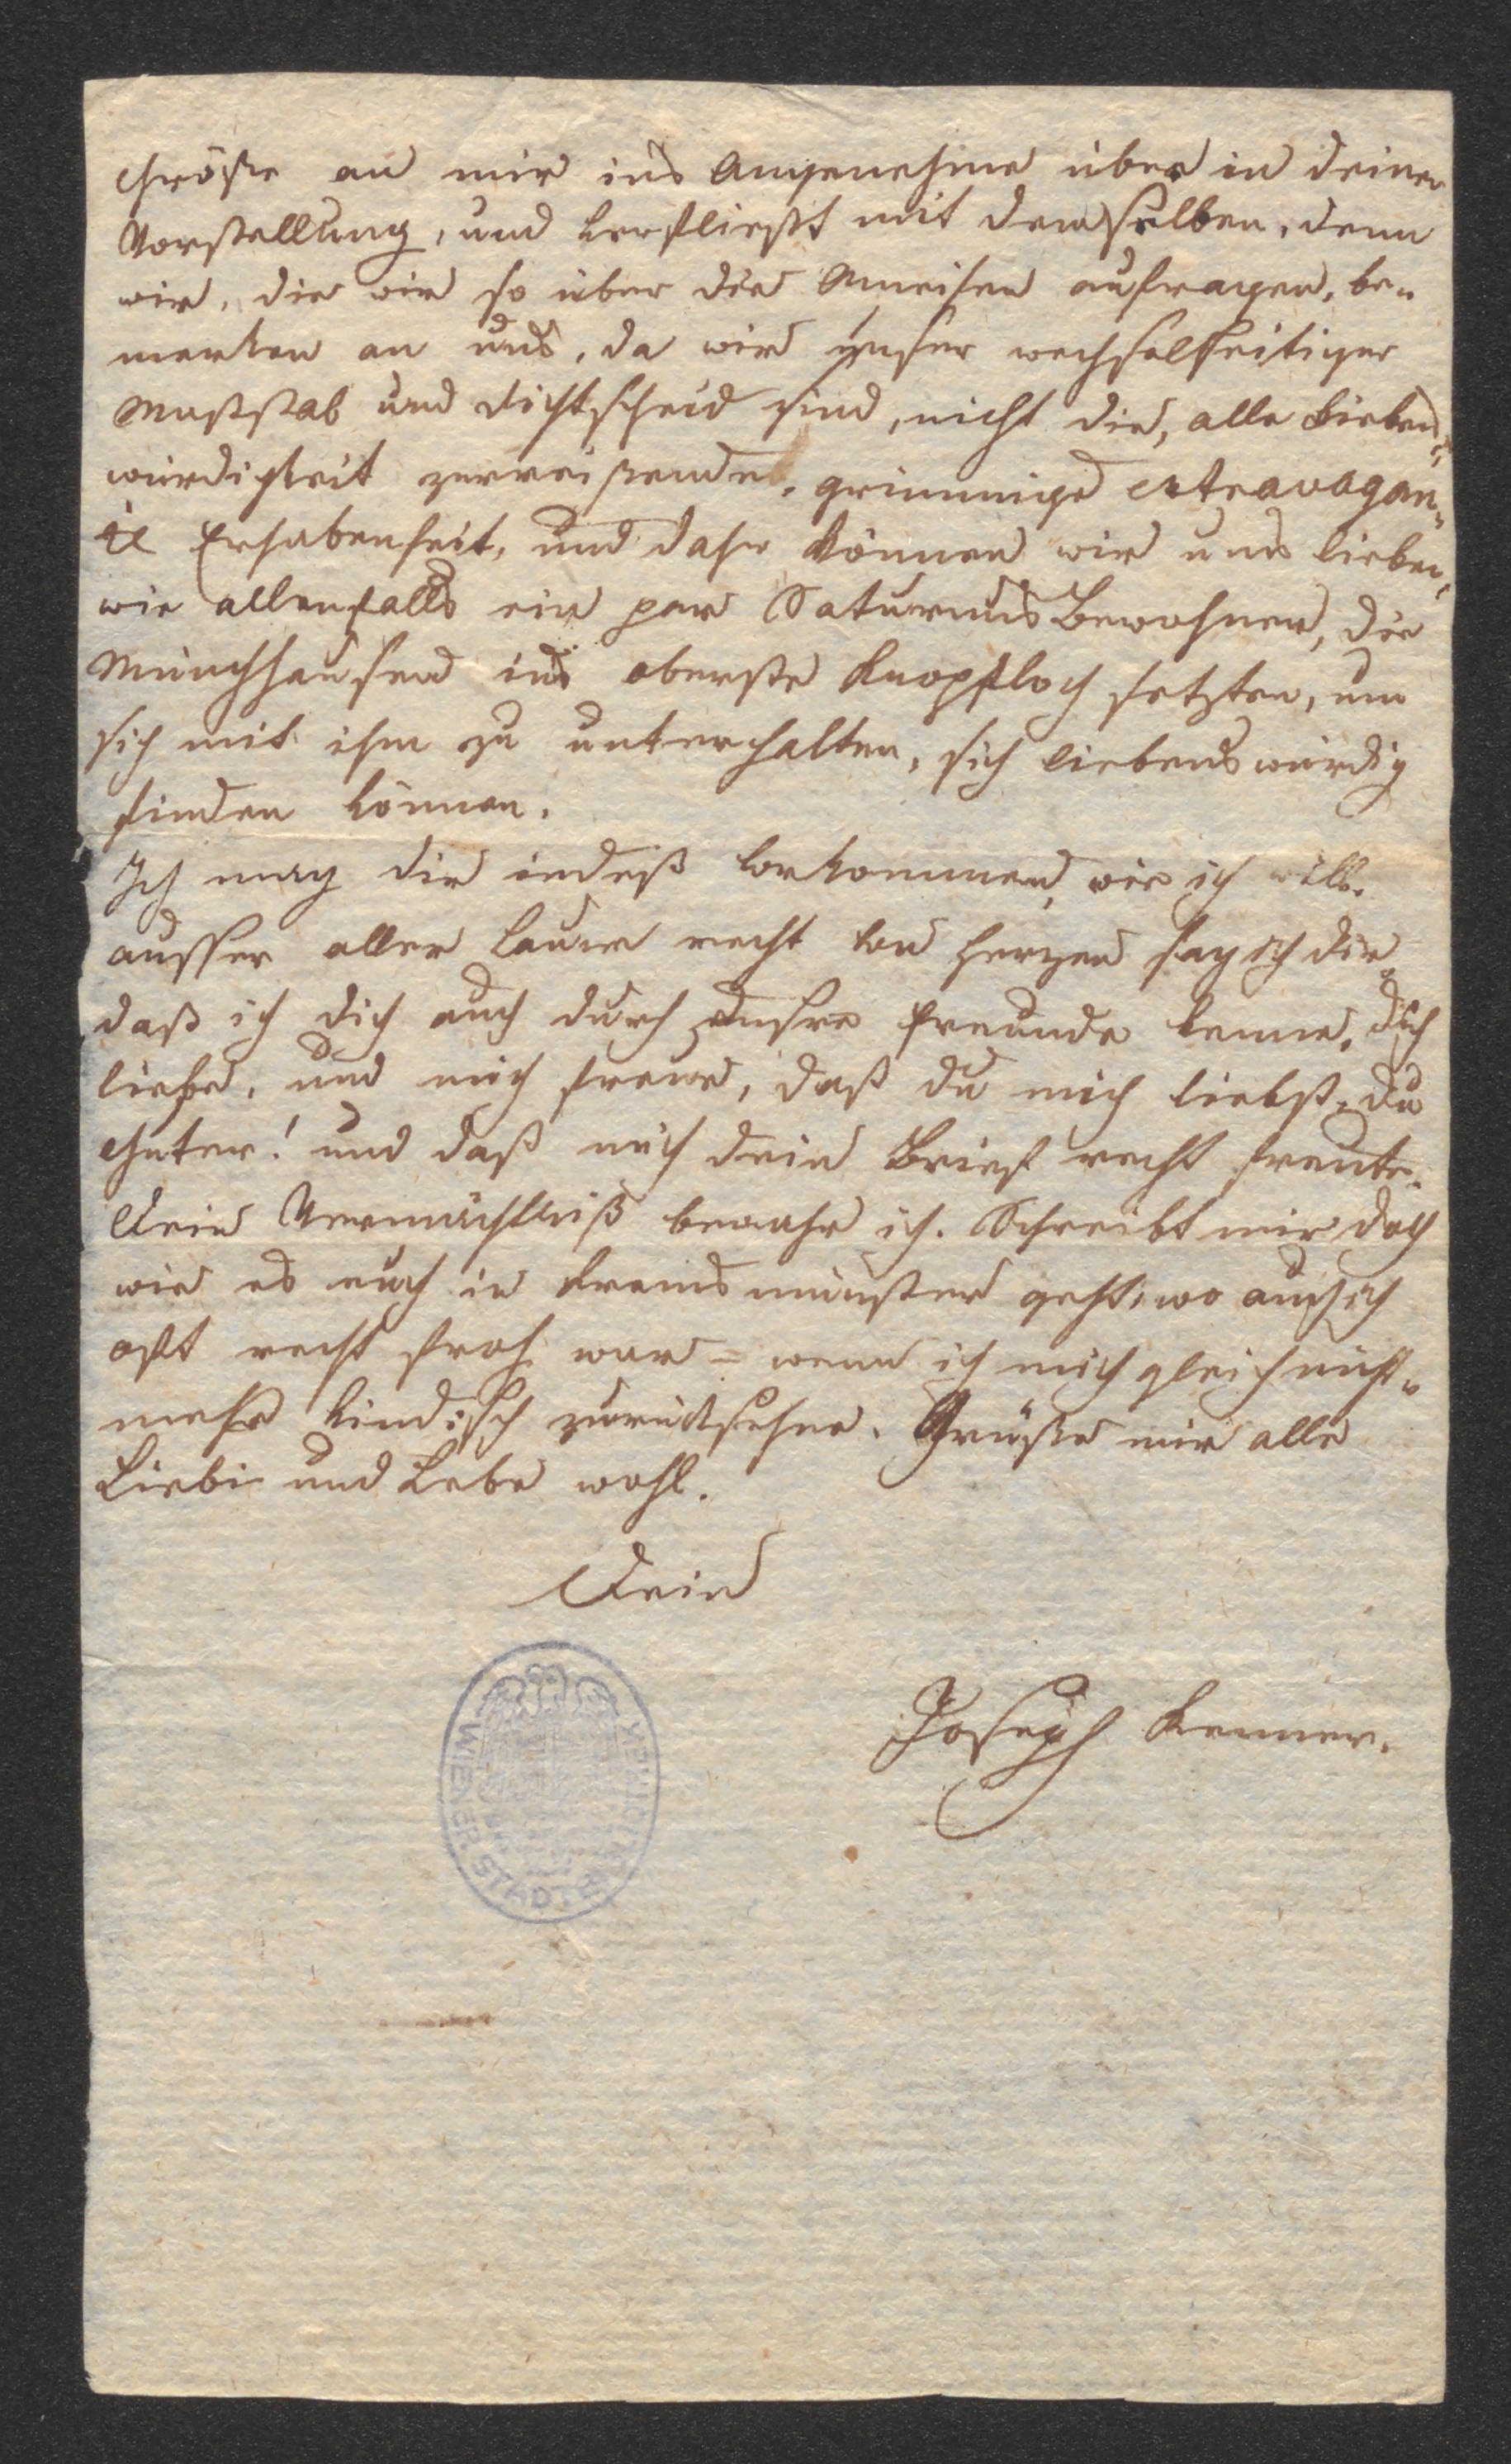 Größe an mir ins Angenehme über in deiner
Vorstellung, und verfließt mit demselben, denn
wir, die wir so über die Ameisen aufragen, be-
merken an uns, da wir unser wechselseitiger
Maßstab und Richtscheid sind, nicht die, alle Liebens-
würdigkeit zerreißende, grimmige extravagan-
te Erhabenheit, und daher können wir uns lieben,
wie allenfalls ein par Saturnusbewohner, die
Münchhausen ins oberste Knopfloch setzten, um
sich mit ihm zu unterhalten, sich liebenswürdig
finden können.
Ich mag dir indeß vorkommen, wie ich will.
ausser aller Laune recht von Herzen sag ich dir
daß ich dich auch durch unsre Freunde kenne, dich
liebe, und mich freue, daß du mich liebst, du
Guter! und daß mich dein Brief recht freute.
Dein Vermächtniß bewahr ich. Schreibt mir doch
wie es euch in Kremsmünster geht, wo auch ich
oft recht froh war – wenn ich mich gleich nicht-
mehr kindisch zurücksehne. Grüße mir alle
Liebe und Lebe wohl.
Dein
Joseph Kenner.
WIENER STADT